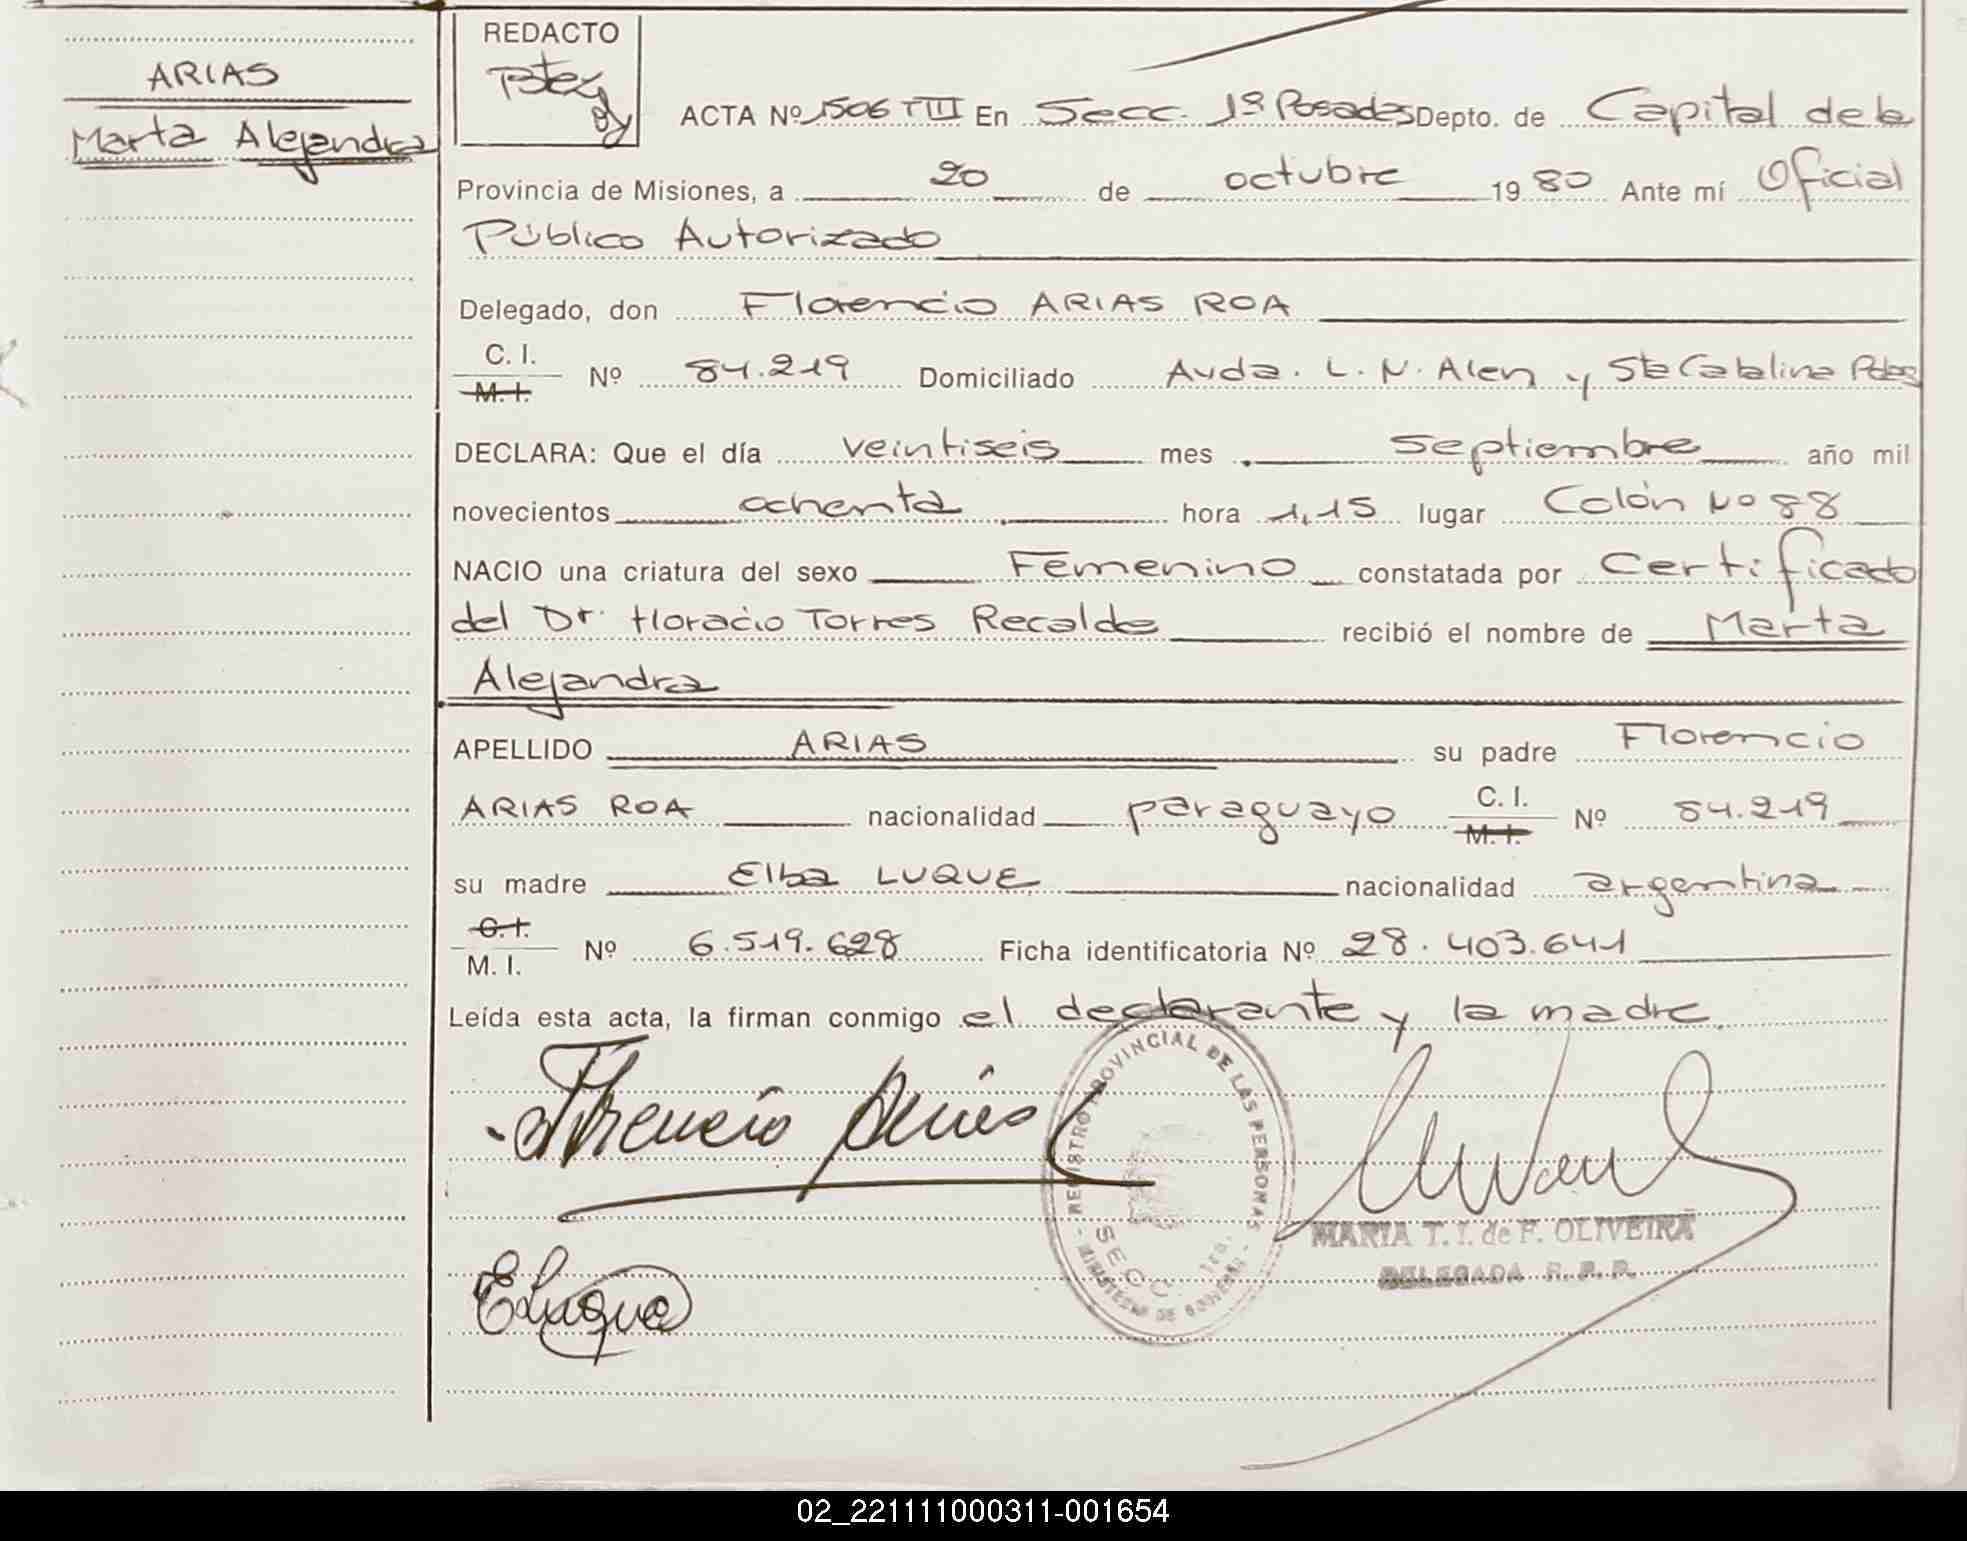 ARIAS
Marta Alejandra
REDACTO
ACTA Nº 1506 TIII En Secc. 1ª Posadas Depto. de Capital de la
Provincia de Misiones, a 20 de octubre 1980 Ante mí Oficial
Público Autorizado
Delegado, don Florencio ARIAS ROA
C. I.
M. I. Nº 84.219 Domiciliado Avda. L. N. Alen y Sta Catalina Pdas
DECLARA: Que el día veintiseis mes septiembre año mil
novecientos ochenta hora 1,15 lugar Colón Nº 88
NACIO una criatura del sexo Femenino constatada por Certificado
del Dr. Horacio Torres Recalde recibió el nombre de Marta
Alejandra
APELLIDO ARIAS su padre Florencio
ARIAS ROA nacionalidad paraguayo C. I. M. I. Nº 84.219
su madre Elba LUQUE nacionalidad argentina
C. I.
M. I. Nº 6.519.628 Ficha identificatoria Nº 28.403.641
Leída esta acta, la firman conmigo el declarante y la madre.
Florencio Arias
REGISTRO PROVINCIAL DE LAS PERSONAS
SECC. 1ra.
MINISTERIO DE GOBIERNO
MARIA T. I. de F. OLIVEIRA
DELEGADA R. P. P.
ELuque
02_221111000311-001654